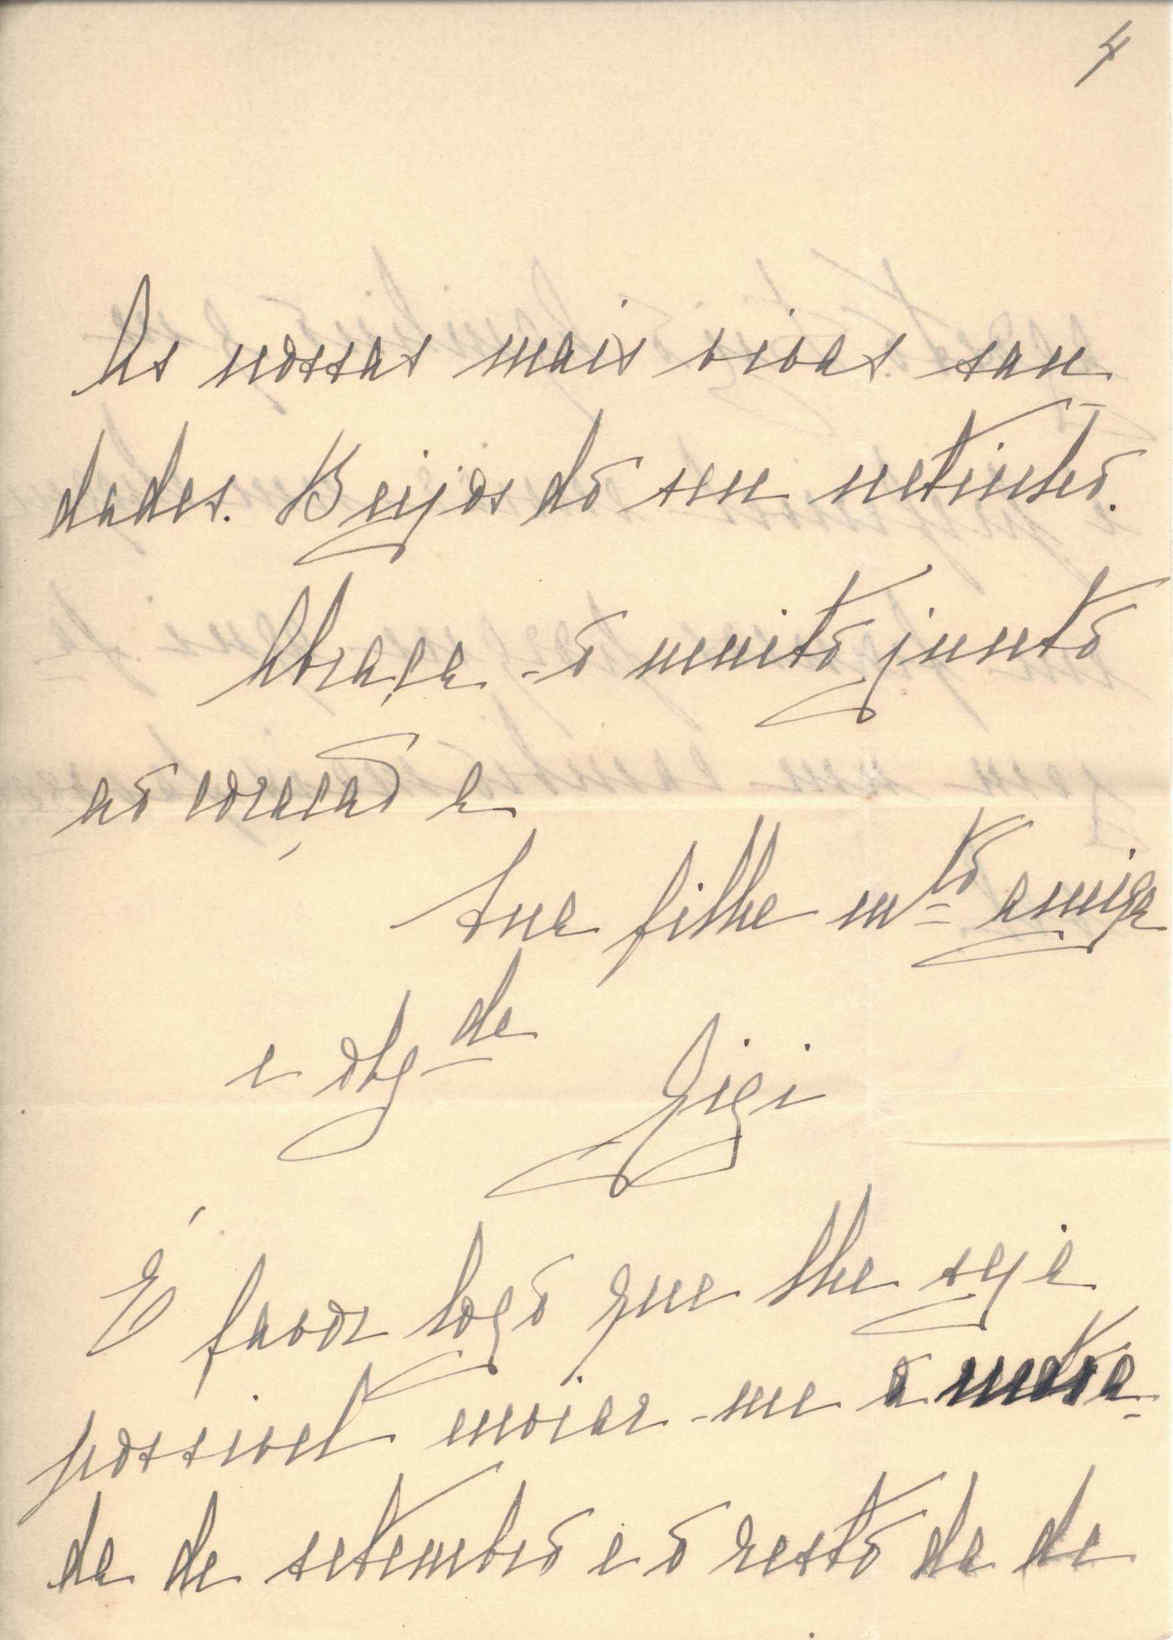 4
As nossas mais vivas sau-
dades. Beijos do seu netinho.
Abraça-o muito junto
ao coração a
Sua filha mto amiga
e obgda
Gigi
É favor logo que lhe seja
possivel enviar-me a meta-
de de setembro e o resto da de